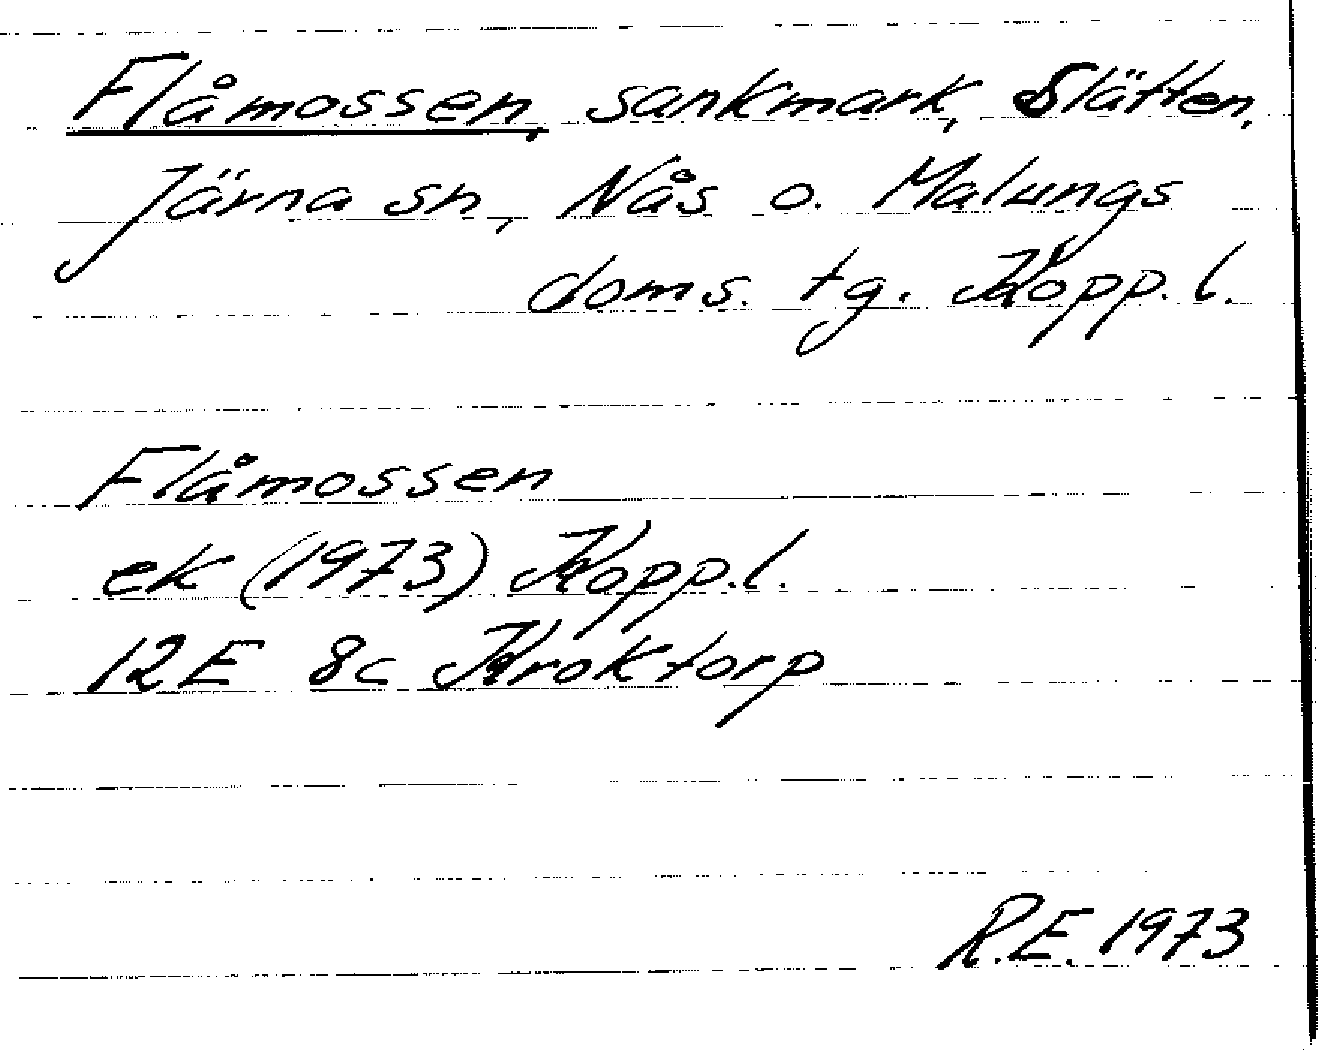 Flåmossen, sankmark, Slätten,
Järna sn, Nås o. Malungs
doms. tg. Kopp. l.
Flåmossen
ek (1973) Kopp. l.
12E 8c Kroktorp
R.E. 1973